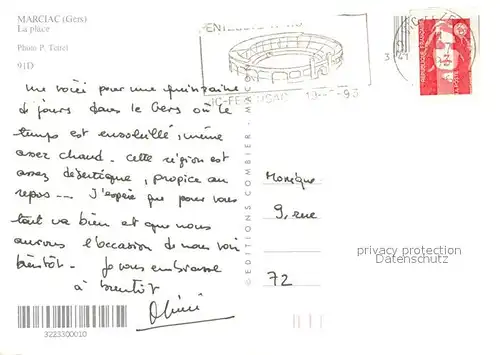 MARCIAC (Gers)
La place
Photo P. Teitel
91D
me voici pour une quinzaine
de jours dans le Gers où le
temps est ensoleillé, même
assez chaud. Cette région est
assez désertique, propice au
repos --- J'espère que pour vous
tout va bien et que nous
aurons l'occasion de nous voir
bientôt. Je vous embrasse
à bientôt
3223300010
© EDITIONS COMBIER - MAC
VIC-FEZENSAC
REPUBLIQUE FRANÇAISE
Monique
9, rue
72
privacy protection
Datenschutz